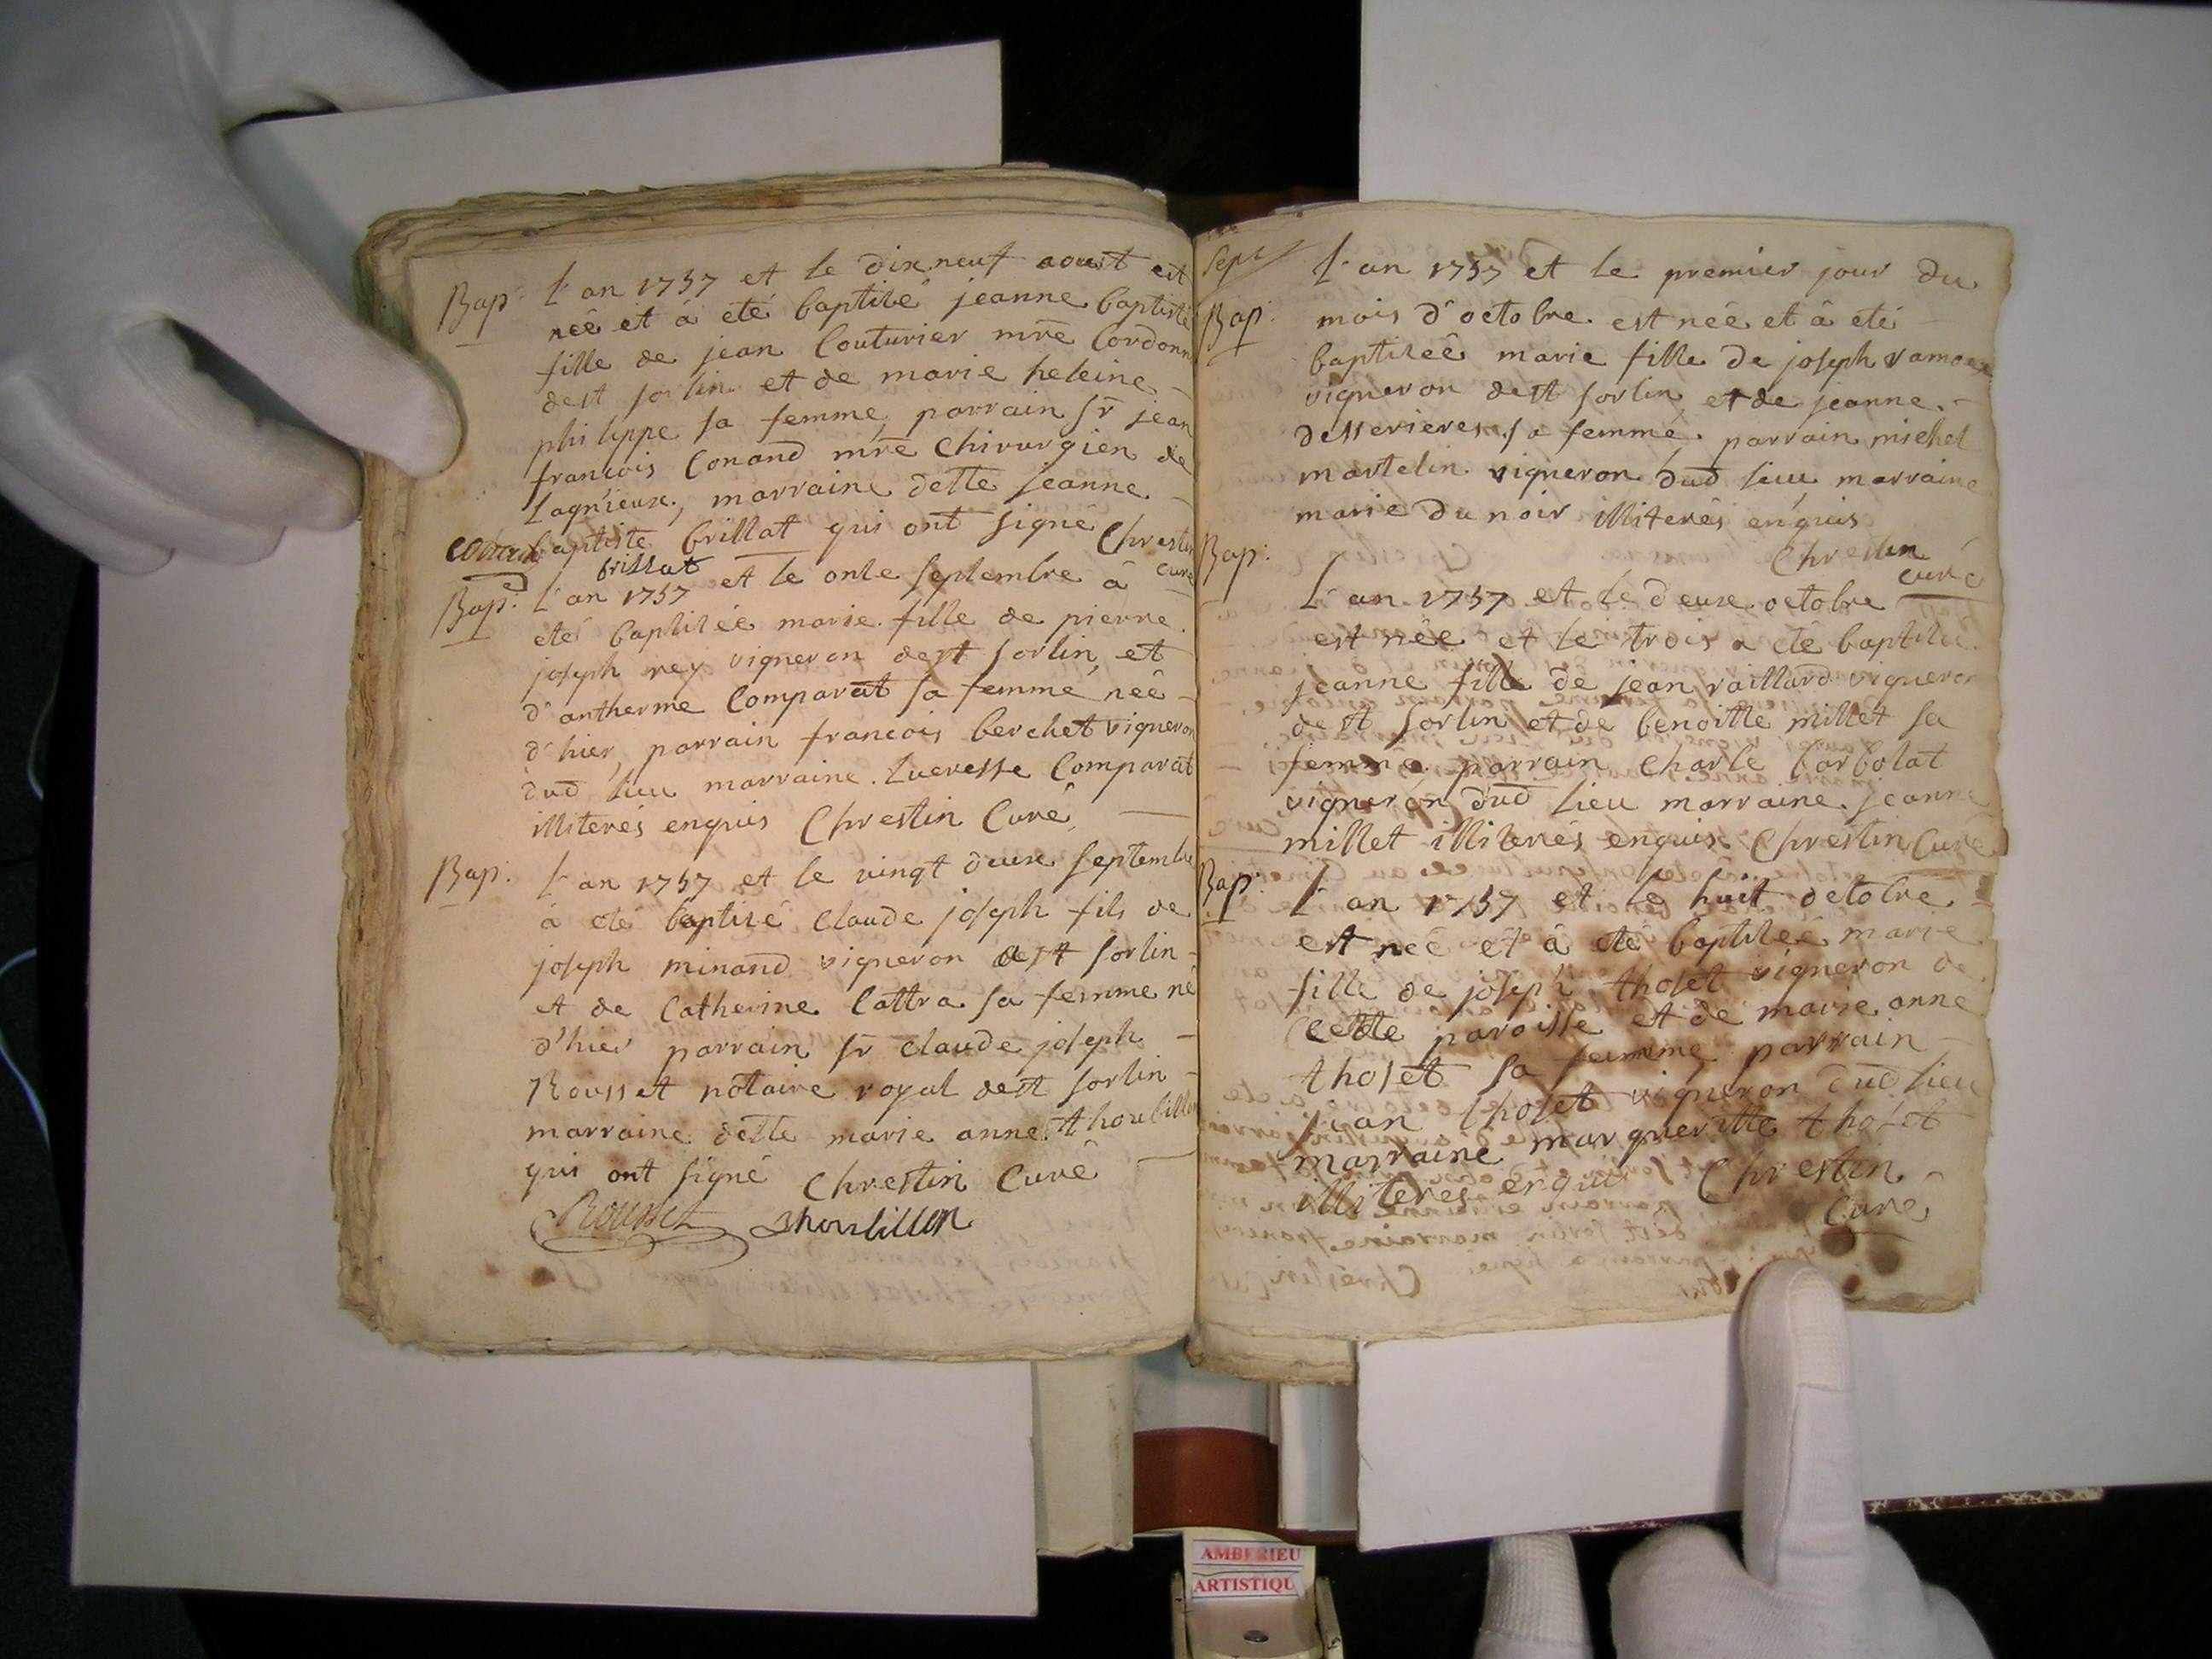 Bap. L'an 1757 et le dix neuf aoust est
née et a été baptisé jeanne baptiste
fille de jean Couturier mre Cordonn
de st sorlin et de marie heleine
philippe sa femme, parrain sr jean
francois Conand mre Chirurgien de
Lagnieux, marraine delle jeanne
baptiste brillat qui ont signé Chrestin
curé
conand
brillat
Bap: L'an 1757 et le onze septembre à
eté baptizéé marie fille de pierre
joseph rey vigneron de st sorlin et
d'antherme Comparat sa femme néé
d'hier, parrain francois berchet vigneron
dud lieu marraine Lucresse Comparat
illiterés enquis Chrestin Curé
Bap. L'an 1757 et le vingt deux septembre
à eté baptizé Claude joseph fils de
joseph minand vigneron de st sorlin
et de Catherine Cattra sa femme né
d'hier parrain sr Claude joseph
Rousset notaire royal de st sorlin
marraine delle marie anne thoubillon
qui ont signé Chrestin Curé
Rousset Thoubillon
Sept
Bap: L'an 1757 et le premier jour du
mois d'octobre est néé et à eté
baptizéé marie fille de joseph ramoux
vigneron de st sorlin et de jeanne
desserieres sa femme parrain michel
martelin vigneron dud lieu marraine
marie du noir illiterés enquis
Chrestin
curé
Bap: L'an 1757 et le deux octobre
est néé et le trois a eté baptizéé
jeanne fille de jean raillard vigneron
de st sorlin et de benoitte millet sa
femme parrain Charle barbolat
vigneron dud lieu marraine jeanne
millet illiterés enquis Chrestin Curé
Bap: L'an 1757 et le huit octobre
est néé et à eté baptizéé marie
fille de joseph tholet vigneron de
Cette paroisse et de marie anne
tholet sa femme parrain
jean tholet vigneron dud lieu
marraine margueritte tholet
illiteres enquis Chrestin
Curé
AMBERIEU
ARTISTIQU